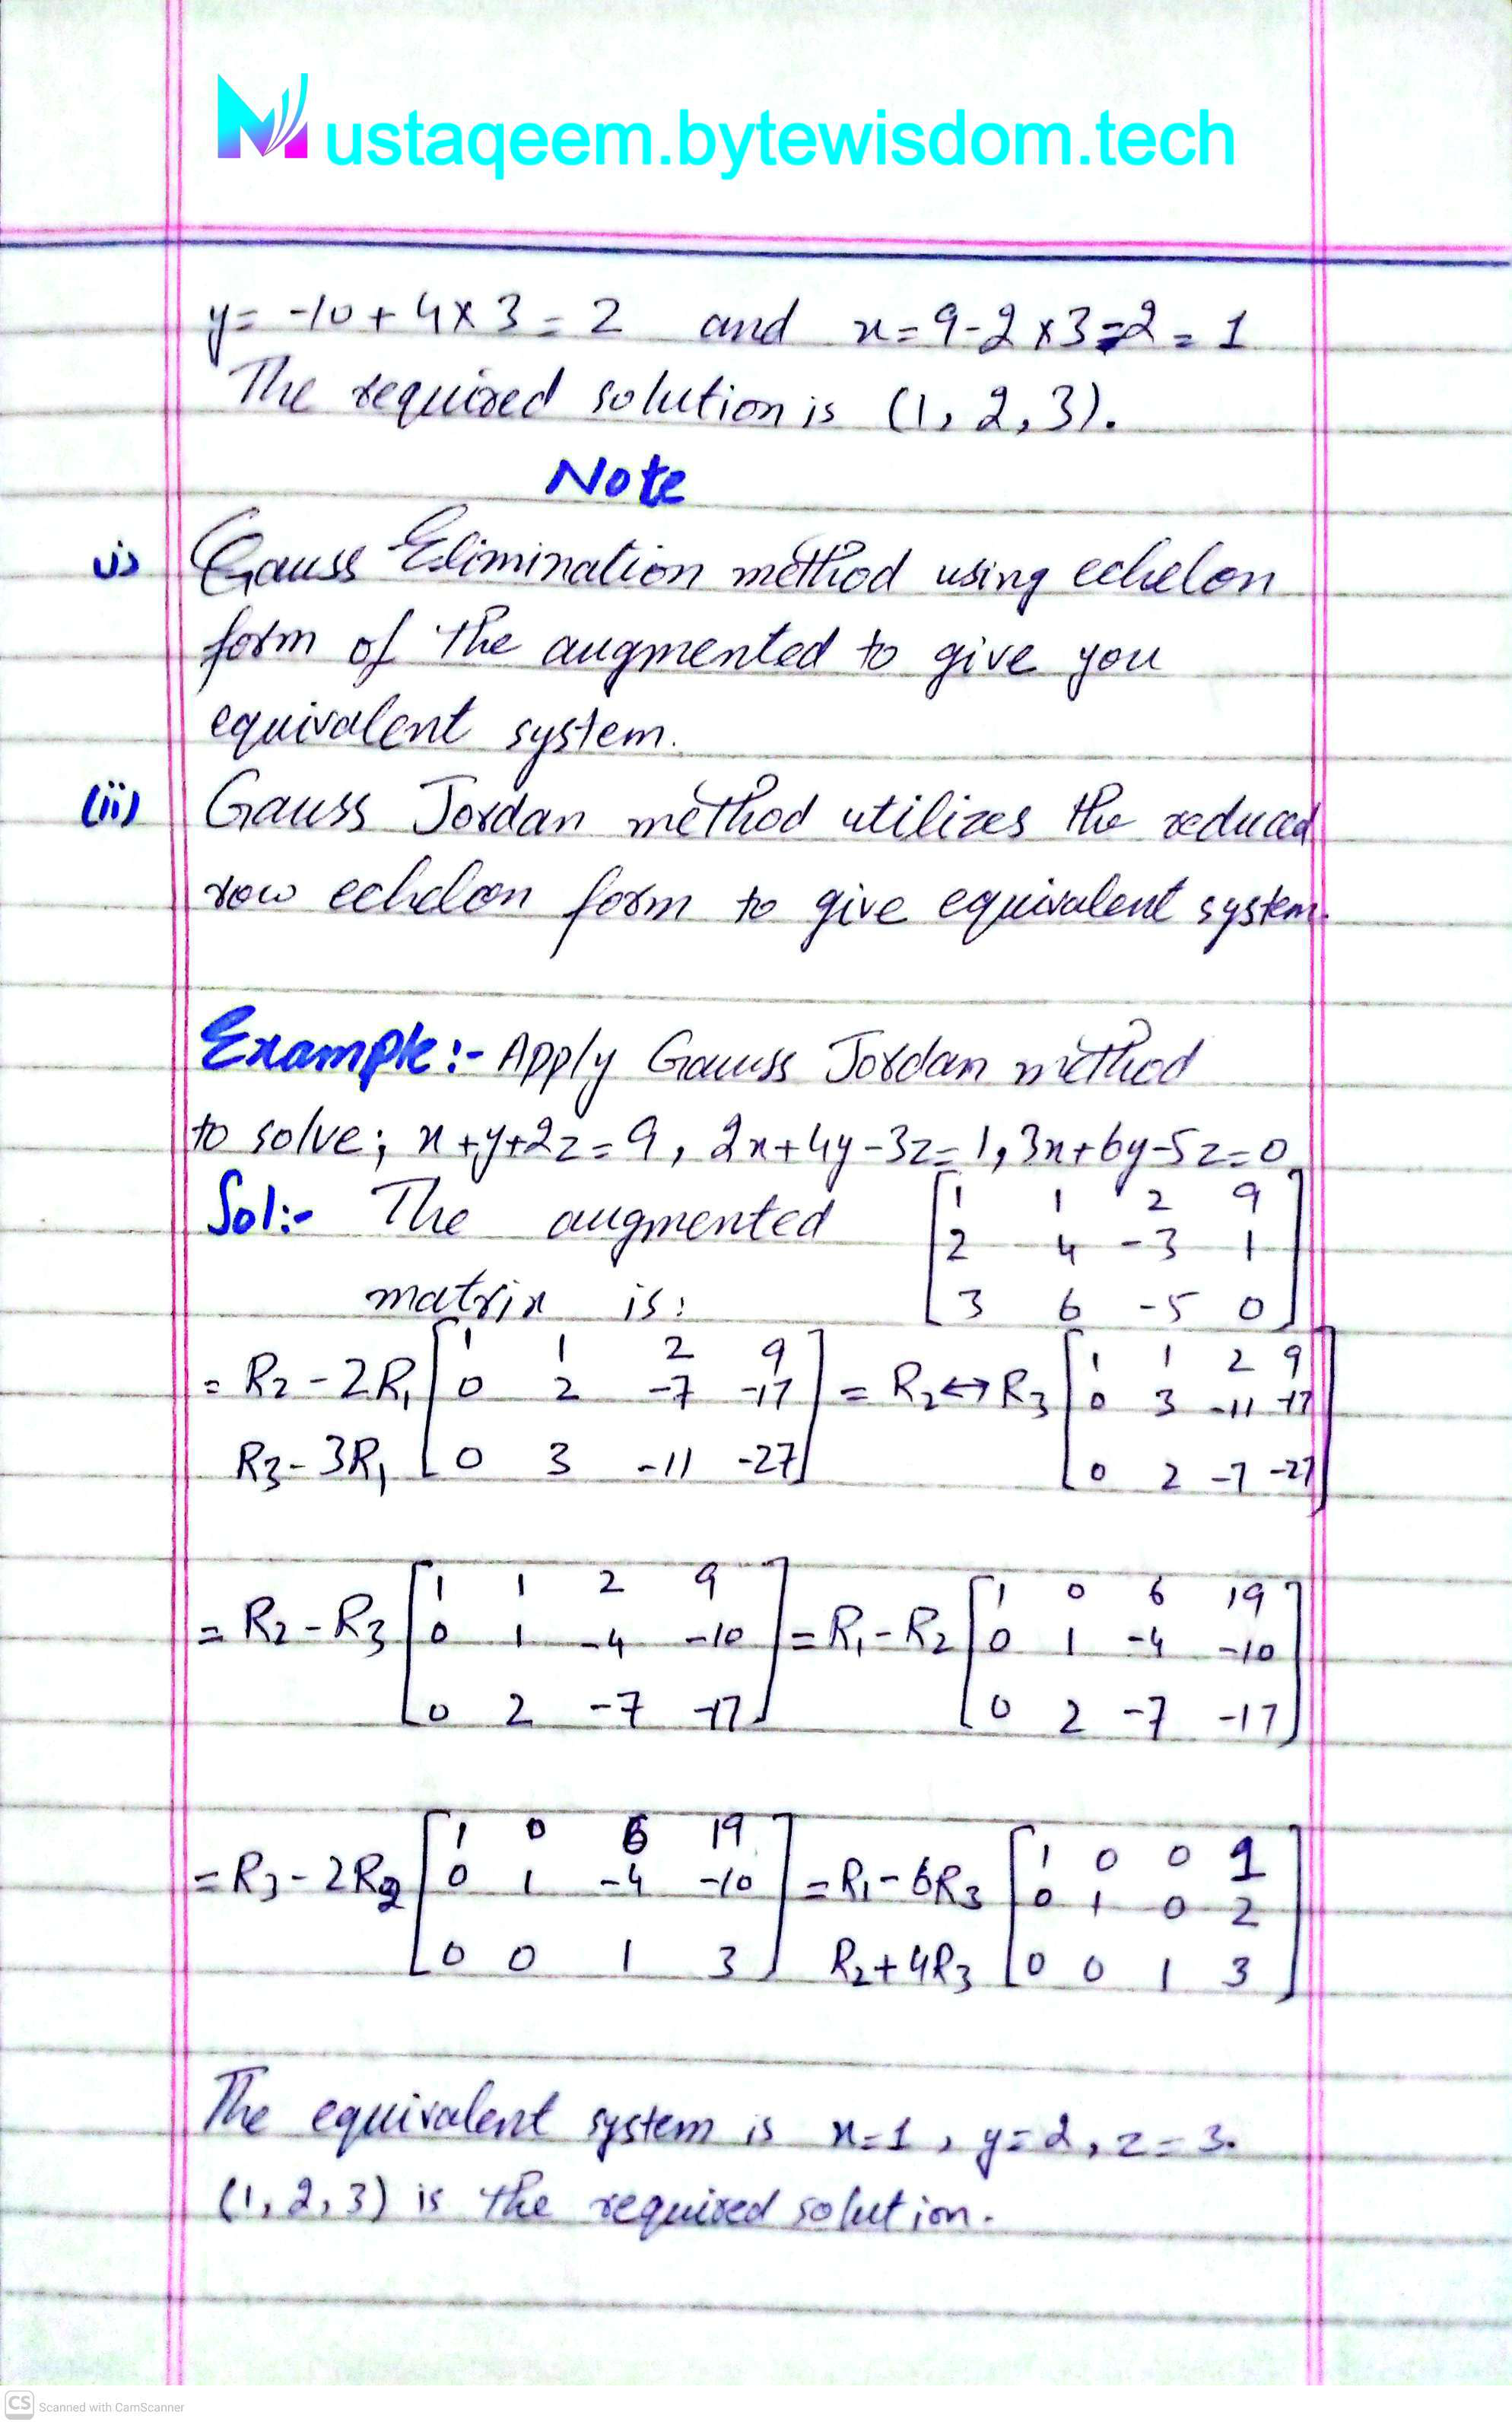 Mustaqeem.bytewisdom.tech
y = -10 + 4 x 3 = 2 and x = 9 - 2 x 3 - 2 = 1
The required solution is (1, 2, 3).
Note
(i) Gauss Elimination method using echelon
form of the augmented to give you
equivalent system.
(ii) Gauss Jordan method utilizes the reduced
row echelon form to give equivalent system.
Example:- Apply Gauss Jordan method
to solve; x+y+2z=9, 2x+4y-3z=1, 3x+6y-5z=0
Sol:- The augmented
matrix is:
[1 1 2 9
2 4 -3 1
3 6 -5 0]
= R2 - 2R1
R3 - 3R1
[1 1 2 9
0 2 -7 -17
0 3 -11 -27]
= R2 ↔ R3
[1 1 2 9
0 3 -11 -17
0 2 -7 -27]
= R2 - R3
[1 1 2 9
0 1 -4 -10
0 2 -7 -17]
= R1 - R2
[1 0 6 19
0 1 -4 -10
0 2 -7 -17]
= R3 - 2R2
[1 0 6 19
0 1 -4 -10
0 0 1 3]
= R1 - 6R3
R2 + 4R3
[1 0 0 1
0 1 0 2
0 0 1 3]
The equivalent system is x=1, y=2, z=3.
(1, 2, 3) is the required solution.
CS Scanned with CamScanner